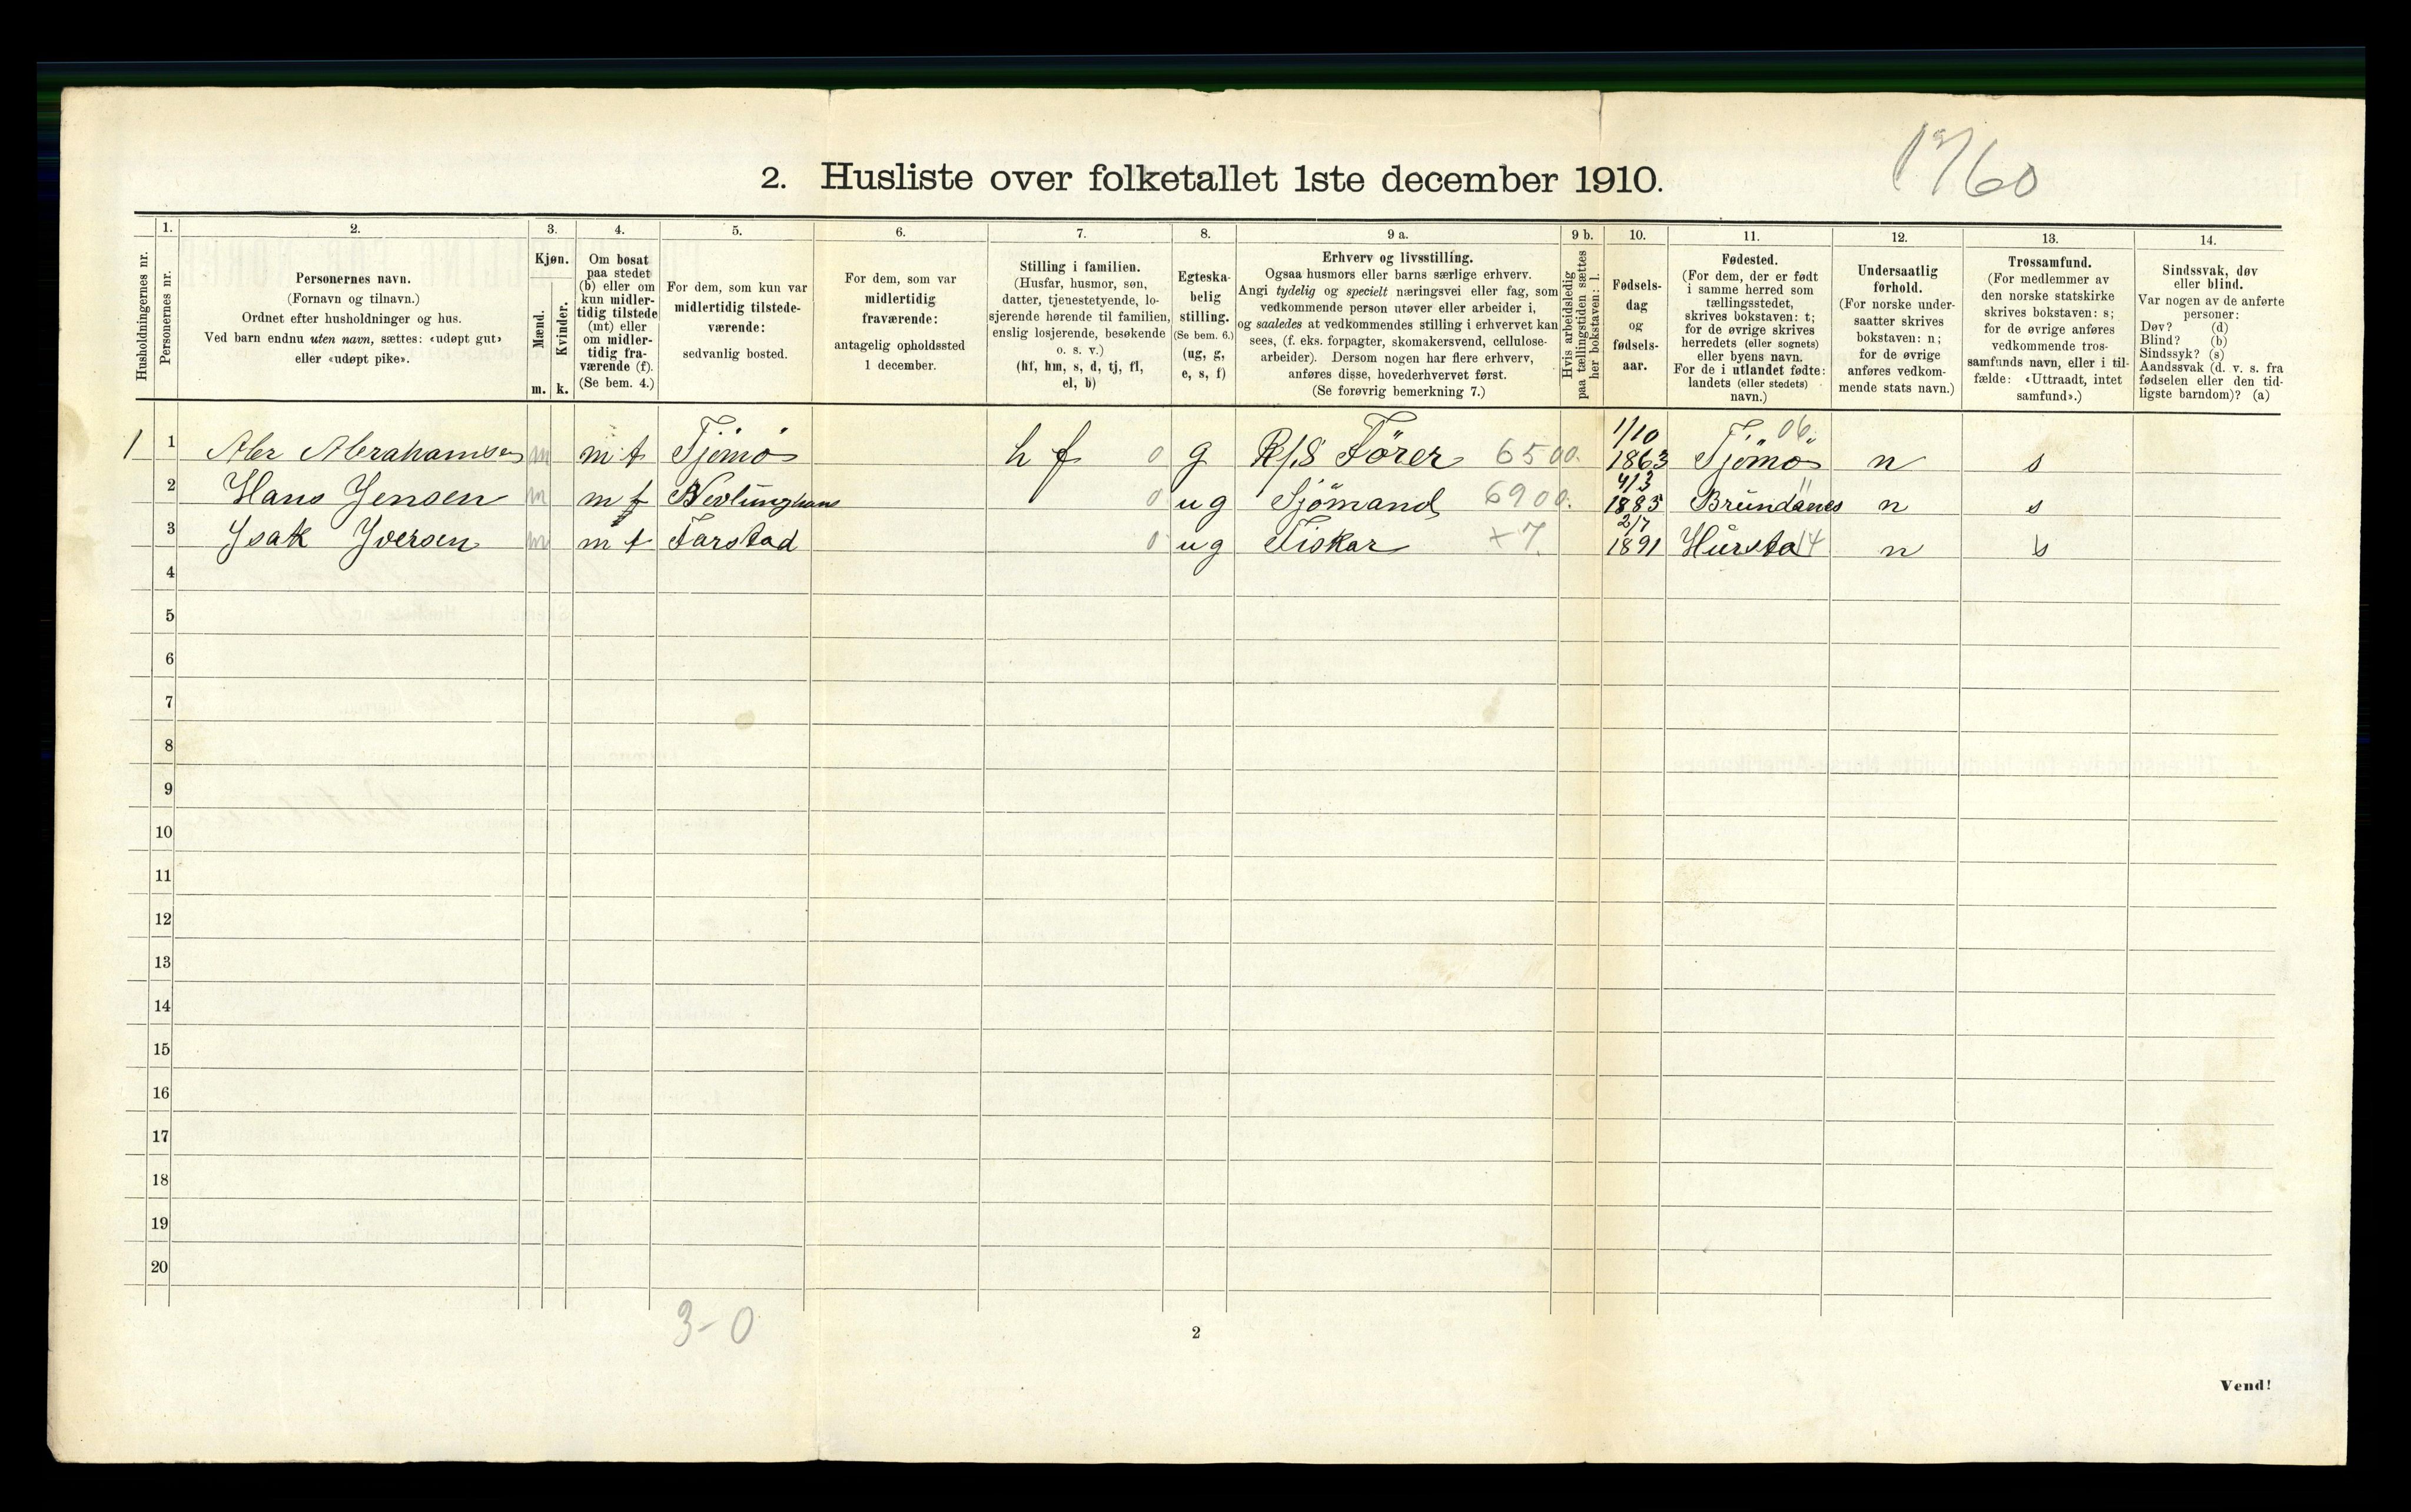 1760
2. Husliste over folketallet 1ste december 1910.
Husholdningernes nr.
1.
Personernes nr.
2.
Personernes navn.
(Fornavn og tilnavn.)
Ordnet efter husholdninger og hus.
Ved barn endnu uten navn, sættes: «udøpt gut»
eller «udøpt pike».
3.
Kjøn.
Mænd.
m.
Kvinder.
k.
4.
Om bosat
paa stedet
(b) eller om
kun midler-
tidig tilstede
(mt) eller
om midler-
tidig fra-
værende (f).
(Se bem. 4.)
5.
For dem, som kun var
midlertidig tilstede-
værende:
sedvanlig bosted.
6.
For dem, som var
midlertidig
fraværende:
antagelig opholdssted
1 december.
7.
Stilling i familien.
(Husfar, husmor, søn,
datter, tjenestetyende, lo-
sjerende hørende til familien,
enslig losjerende, besøkende
o. s. v.)
(hf, hm, s, d, tj, fl,
el, b)
8.
Egteska-
belig
stilling.
(Se bem. 6.)
(ug, g,
e, s, f)
9 a.
Erhverv og livsstilling.
Ogsaa husmors eller barns særlige erhverv.
Angi tydelig og specielt næringsvei eller fag, som
vedkommende person utøver eller arbeider i,
og saaledes at vedkommendes stilling i erhvervet kan
sees, (f. eks. forpagter, skomakersvend, cellulose-
arbeider). Dersom nogen har flere erhverv,
anføres disse, hovederhvervet først.
(Se forøvrig bemerkning 7.)
9 b.
Hvis arbeidsledig
paa tællingstiden sættes
her bokstaven: l.
10.
Fødsels-
dag
og
fødsels-
aar.
11.
Fødested.
(For dem, der er født
i samme herred som
tællingsstedet,
skrives bokstaven: t;
for de øvrige skrives
herredets (eller sognets)
eller byens navn.
For de i utlandet fødte:
landets (eller stedets)
navn.)
12.
Undersaatlig
forhold.
(For norske under-
saatter skrives
bokstaven: n;
for de øvrige
anføres vedkom-
mende stats navn.)
13.
Trossamfund.
(For medlemmer av
den norske statskirke
skrives bokstaven: s;
for de øvrige anføres
vedkommende tros-
samfunds navn, eller i til-
fælde: «Uttraadt, intet
samfund».)
14.
Sindssvak, døv
eller blind.
Var nogen av de anførte
personer:
Døv? (d)
Blind? (b)
Sindssyk? (s)
Aandssvak (d. v. s. fra
fødselen eller den tid-
ligste barndom)? (a)
1 1 Aber Abrahamsen m mt Tjømø hf 0 g R/S Förer 6500. 1/10 1863 Tjömö 06. n s
2 Hans Jensen m mt Nevlunghavn 0 ug Sjömand 6900. 4/3 1885 Brundanes n s
3 Ysak Iversen m mt Farstad 0 ug Fiskar +7. 2/7 1891 Hursta 14 n s
4
5
6
7
8
9
10
11
12
13
14
15
16
17
18
19
20
3-0
2
Vend!